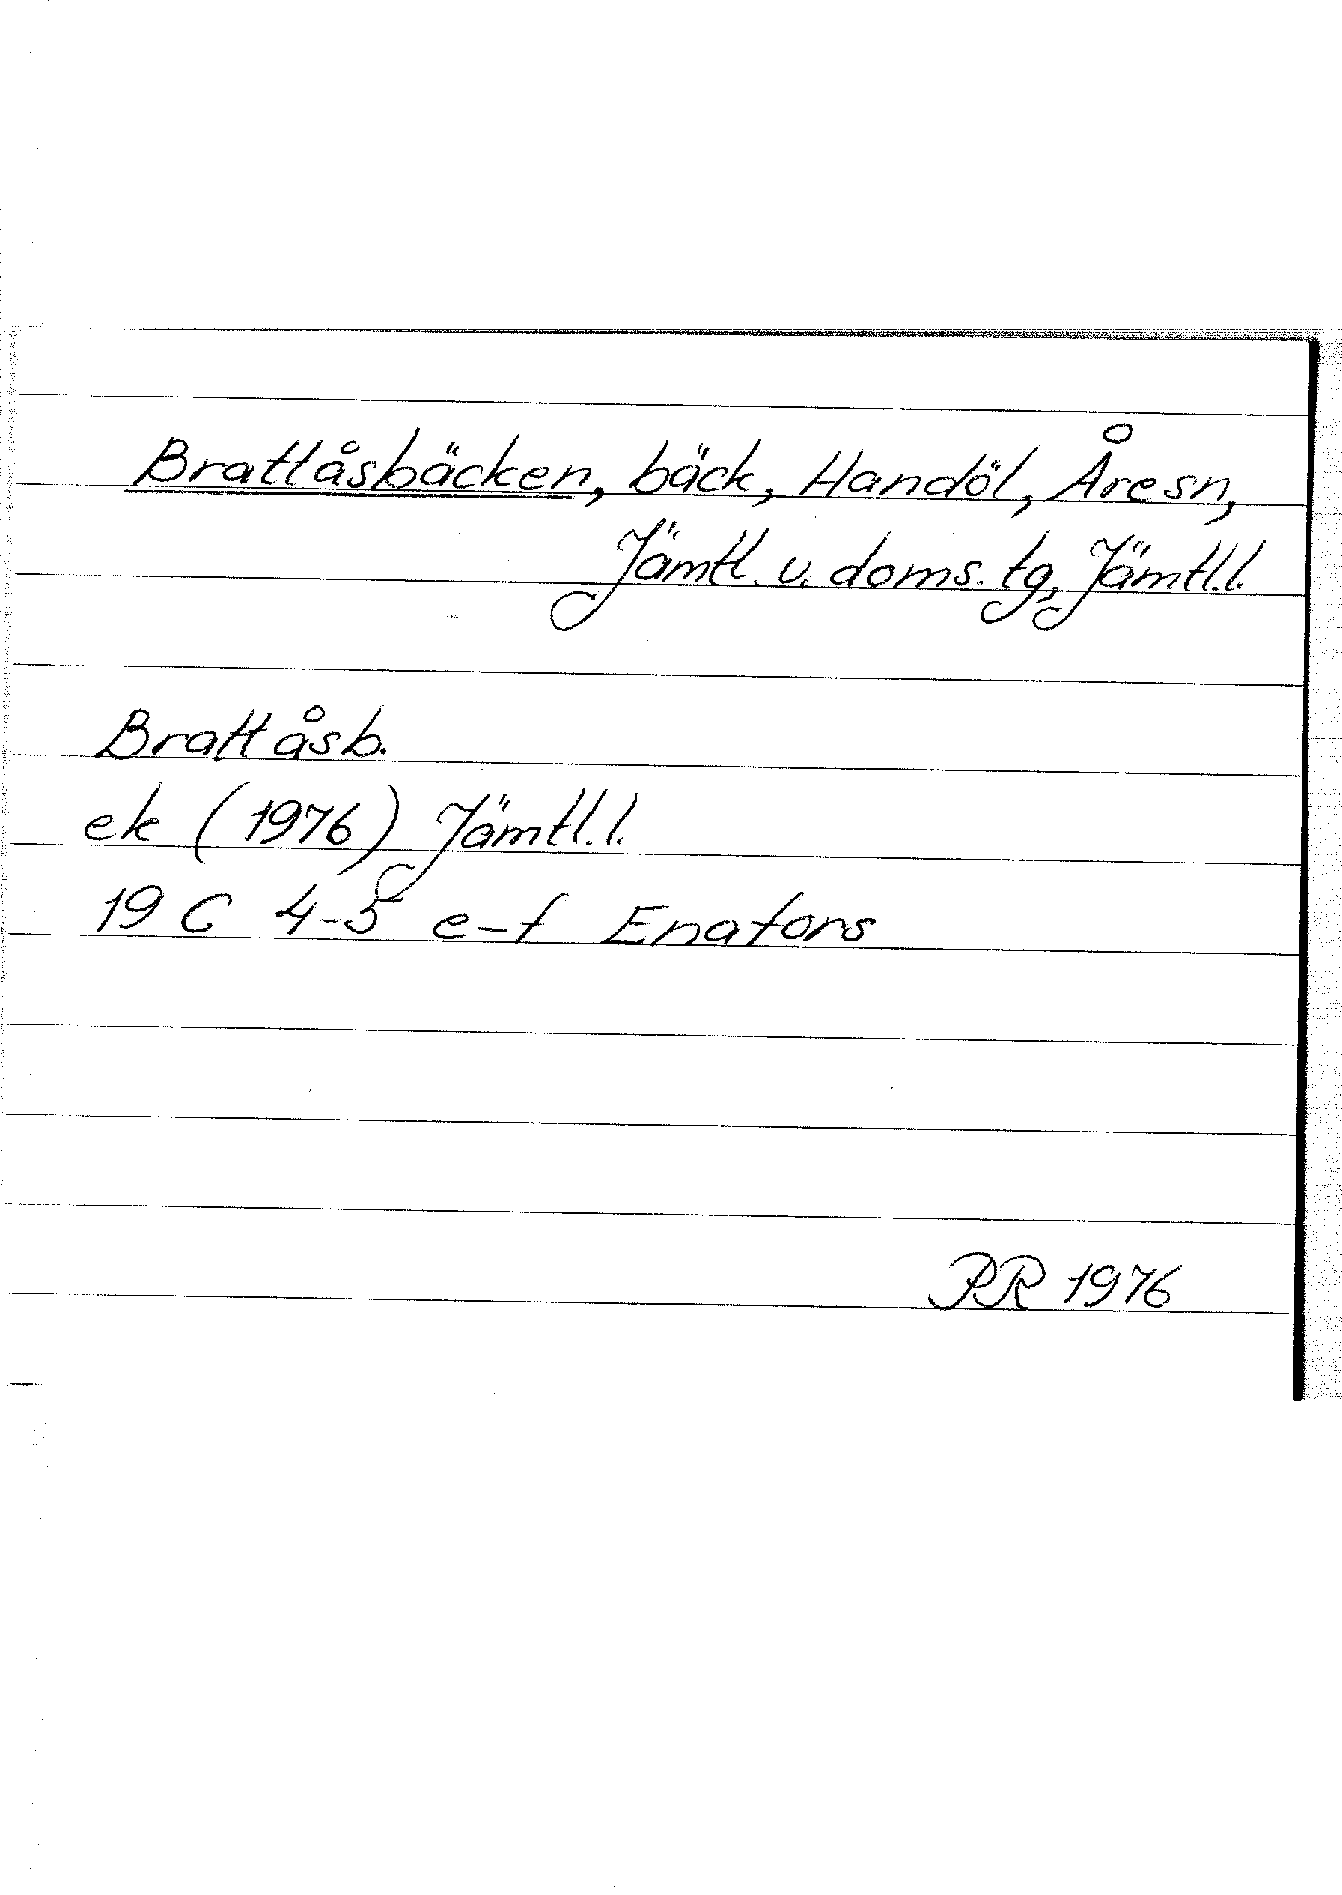 Brattåsbäcken, bäck, Handöl, Åre sn,
Jämtl. v. doms. tg, Jämtl. l.
Brattåsb.
ek (1976) Jämtl. l.
19 C 4-5 e-f Enafors
PR 1976